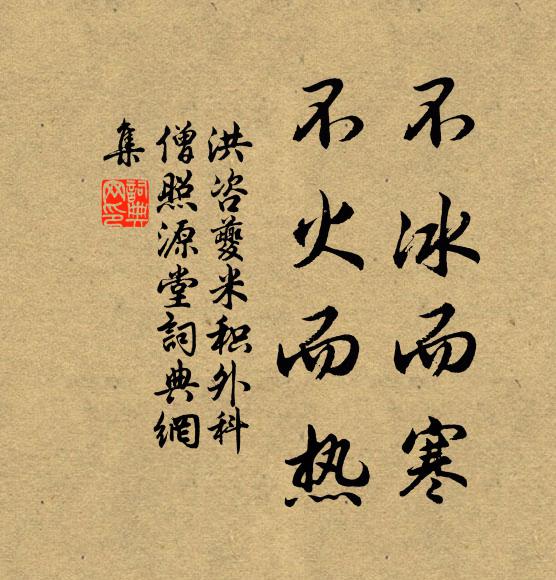 不冰而寒
不火而热
洪咨夔米积外科
僧照源堂詞典網
集
詞典網印